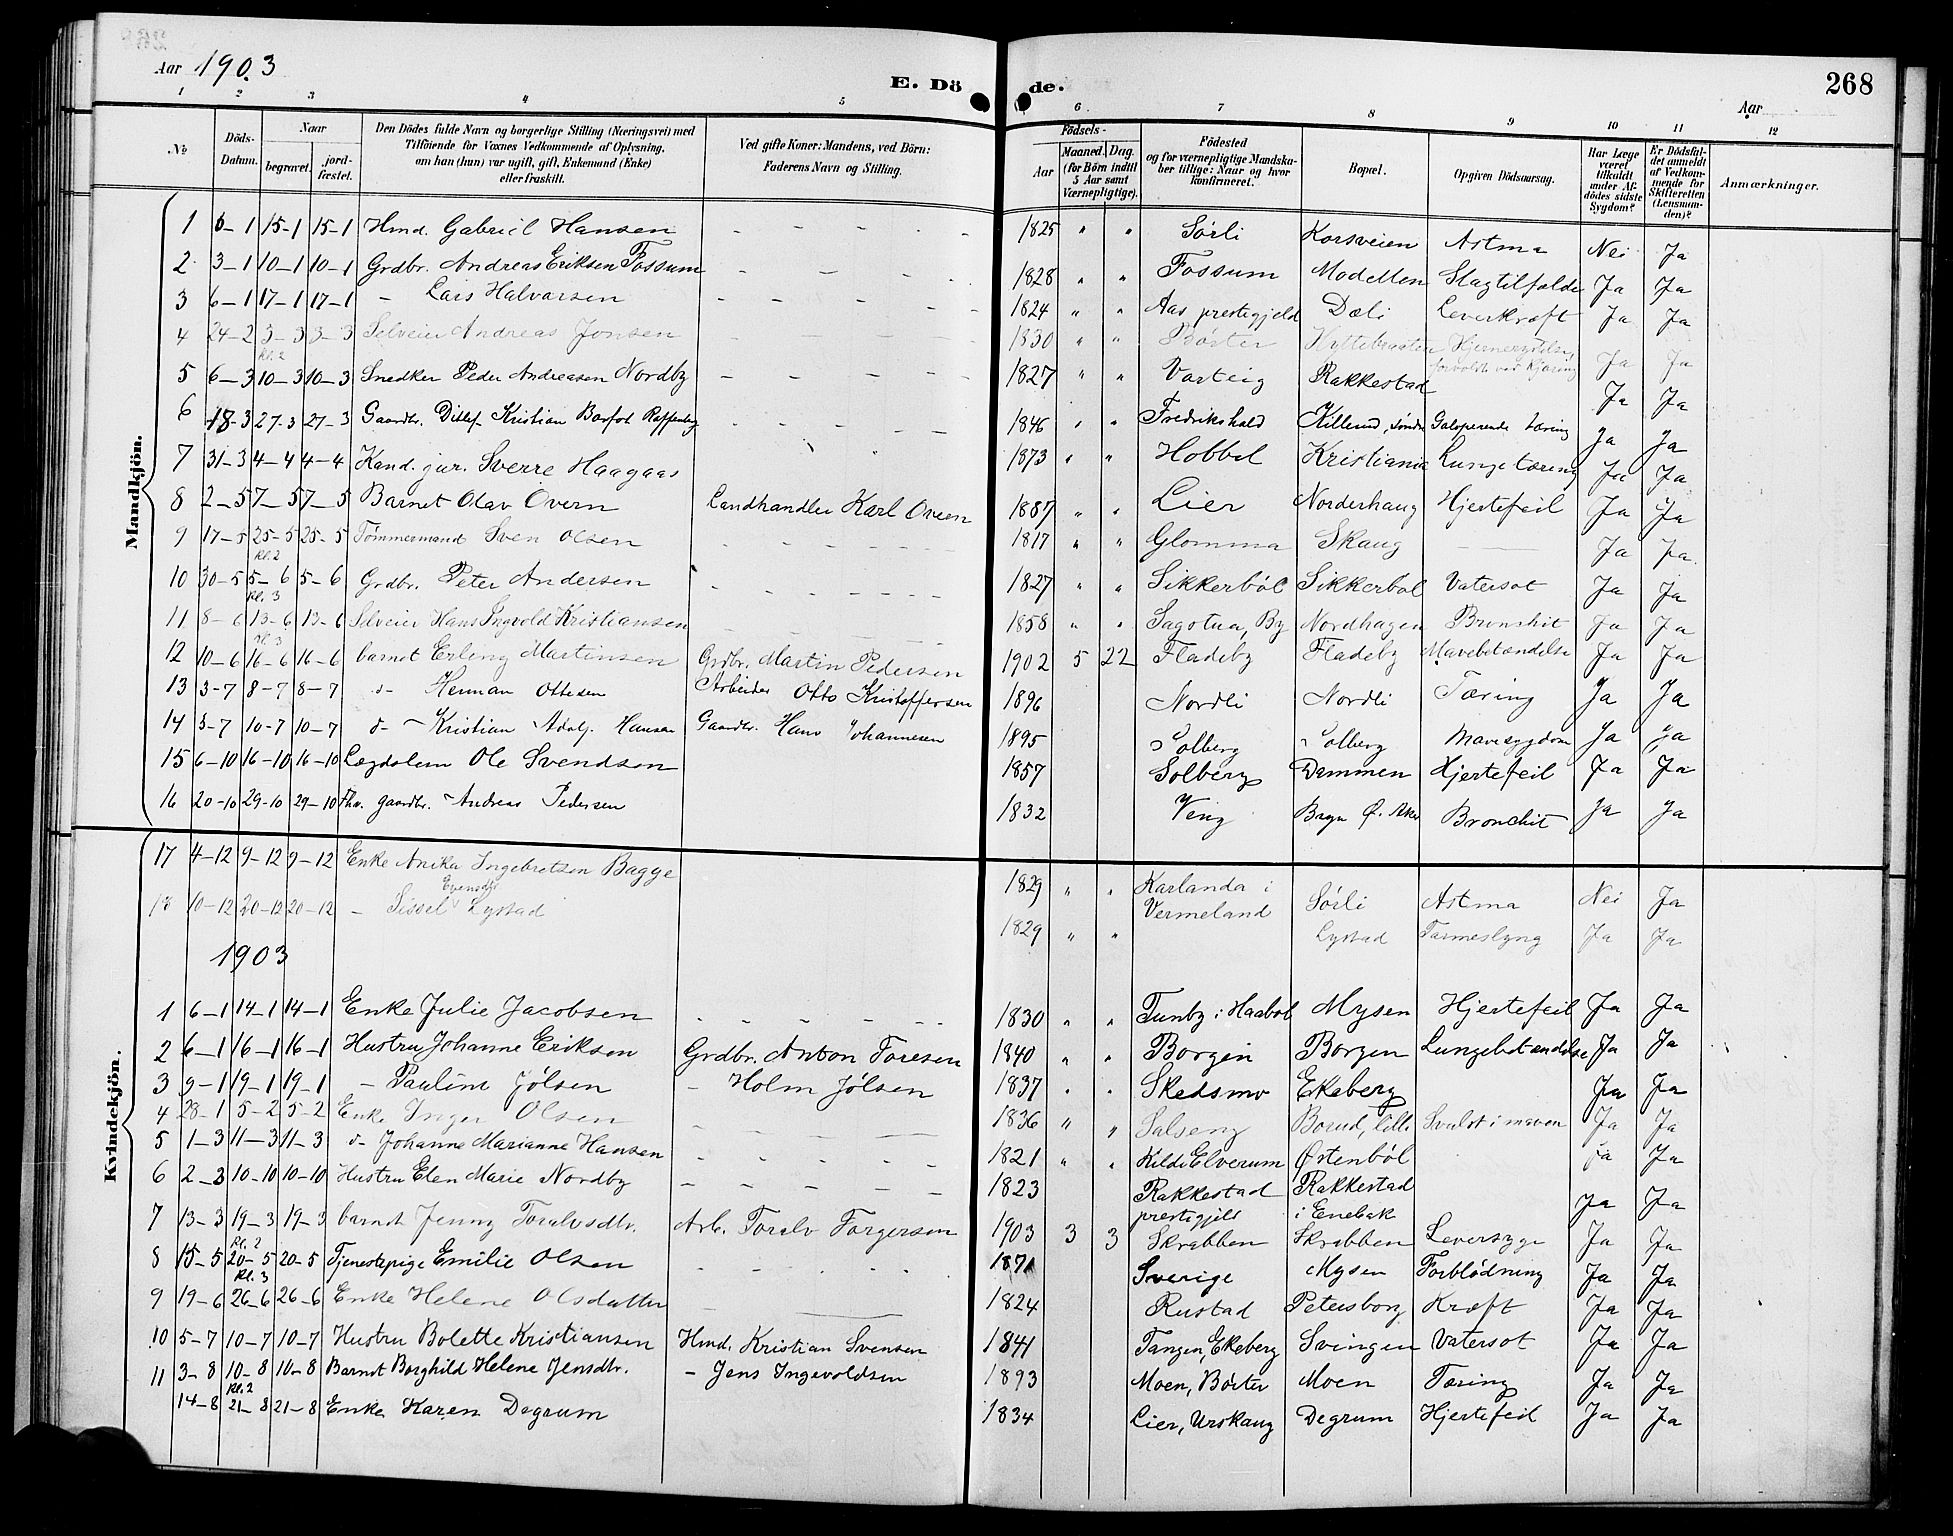 Aar 1903
E. Döde.
268
Aar
1 2 3 4 5 6 7 8 9 10 11 12
No
Döds-Datum.
Naar
begravet.
jord-fæstet.
Den Dödes fulde Navn og borgerlige Stilling (Næringsvei) med Tilföiende for Voxnes Vedkommende af Oplysning, om han (hun) var ugift, gift, Enkemand (Enke) eller fraskilt.
Ved gifte Koner: Mandens, ved Börn: Faderens Navn og Stilling.
Födsels-
Aar
Maaned. Dag.
(for Börn indtil 5 Aar samt Værnepligtige).
Födested
og for værnepligtige Mandska-ber tillige: Naar og hvor konfirmeret.
Bopæl.
Opgiven Dödsaarsag.
Har Læge været tilkaldt under Af-dödes sidste Sygdom?
Er Dödsfal-det anmeldt af Vedkom-mende for Skifteretten (Lensman-den)?
Anmærkninger.
Mandkjön.
1 6-1 15-1 15-1 Hmd. Gabriel Hansen - - - - - 1825 " " Sørli Korsveien Astma Nei Ja
2 3-1 10-1 10-1 Grdbr. Andreas Eriksen Fossum - - - - 1828 " " Fossum Modellen Slagtilfælde Ja Ja
3 6-1 17-1 17-1 - Lars Halvorsen - - - - - 1824 " " Aas prestegjeld Dæli Leverkræft Ja Ja
4 24-2 3-3 3-3 Selveier Andreas Jonsen 1830 " " Børter Hyttebraaten Ja Ja
Kl. 2
5 6-3 10-3 10-3 Snedker Peder Andreasen Nordby - - - - 1827 " " Varteig Rakkestad Ja Ja
6 18-3 27-3 27-3 Gaardbr. Ditlef Kristian Barfot - - - - - 1846 " " Fredrikshald Galoperende Tæring Ja Ja
7 31-3 4-4 4-4 Kand. jur. Sverre Haagaas 1873 " " Hobbel Kristiania Lungetæring Ja Ja
8 2-5 7-5 7-5 Barnet Olav Overn Landhandler Karl Oveen 1887 " " Lier Norderhaug Hjertefeil Ja Ja
9 17-5 25-5 25-5 Tømmermand Sven Olsen - - - - - - 1817 " " Glomma Skaug — Ja Ja
Kl. 2
10 30-5 5-6 5-6 Grdbr. Peter Andersen - - - - - - 1827 " " Sikkerbøl Sikkerbøl Vatersot Ja Ja
Kl. 3
11 8-6 13-6 13-6 Selveier Hans Ingvold Kristiansen - - - - 1858 " " Sagstua, By Nordhagen Bronchit Ja Ja
Kl. 3
12 10-6 16-6 16-6 barnet Erling Martinsen Grdbr. Martin Pedersen 1902 5 22 Fladeby Fladeby Mavebetændelse Ja Ja
13 3-7 8-7 8-7 d- Herman Ottesen Arbeider Otto Kristoffersen 1896 Nordli Nordli Tæring Ja Ja
14 3-7 10-7 10-7 d- Kristian Adolf Hansen Gaardbr. Hans Johannesen 1895 Solberg Solberg Mavesygdom Ja Ja
15 6-10 16-10 16-10 Lægdslem Ole Svendsen 1857 Solberg Dammen Hjertefeil Ja Ja
16 20-10 29-10 29-10 Fhv. gaardbr. Andreas Pedersen 1832 Bryn Ø. Aker Bronchit Ja Ja
Kvindekjön.
17 4-12 9-12 9-12 Enke Anika Ingebretsen Bagge 1829 " " Karlanda i Vermeland Sørli Astma Nei Ja
18 10-12 20-12 20-12 - Sissel Evensdtr Lystad 1829 " " Lystad Tarmeslyng Ja Ja
1903
1 6-1 14-1 14-1 Enke Julie Jacobsen - - - - - - 1830 " " Tunby i Haabøl Mysen Hjertefeil Ja Ja
2 6-1 16-1 16-1 Hustru Johanne Eriksen Grdbr. Anton Toresen 1840 " " Borgen Borgen Lungebetændelse Ja Ja
3 9-1 19-1 19-1 - Pauline Jølsen - Holm Jølsen 1837 " " Skedsmo Ekeberg Ja Ja
4 28-1 5-2 5-2 Enke Inger Olsen - - - - - 1836 " " Salseng Borud, lille Svulst i maven Ja Ja
5 1-3 11-3 11-3 d- Johanne Marianne Hansen - - - - - 1821 " " Kilde Elverum Østenbøl Ja Ja
6 2-3 10-10 10-10 Hustru Elen Marie Nordby - - - - - 1823 Rakkestad prestegjeld Rakkestad i Enebak Ja Ja
7 13-3 19-3 19-3 barnet Jenny Toralvsdtr. Arb. Toralv Torgersen 1903 3 3 Skrabben Skrabben Leversyge Ja Ja
Kl. 2
8 15-5 20-5 20-5 Tjenestepige Emilie Olsen - - - - 1871 Sverige Mysen Forblødning Ja Ja
Kl. 3
9 19-6 26-6 26-6 Enke Helene Olsdatter - — 1824 Rustad Petersborg Kræft Ja Ja
10 5-7 10-7 10-7 Hustru Bolette Kristiansen Hmd. Kristian Svensen 1841 Tangen, Ekeberg Svingen Vatersot Ja Ja
11 3-8 10-8 10-8 Barnet Borghild Helene Jensdtr. - Jens Ingevoldsen 1893 Moen, Børter Moen Tæring Ja Ja
Kl. 2
14-8 21-8 21-8 Enke Karen Degrum 1834 Lier, Urskaug Degrum Hjertefeil Ja Ja